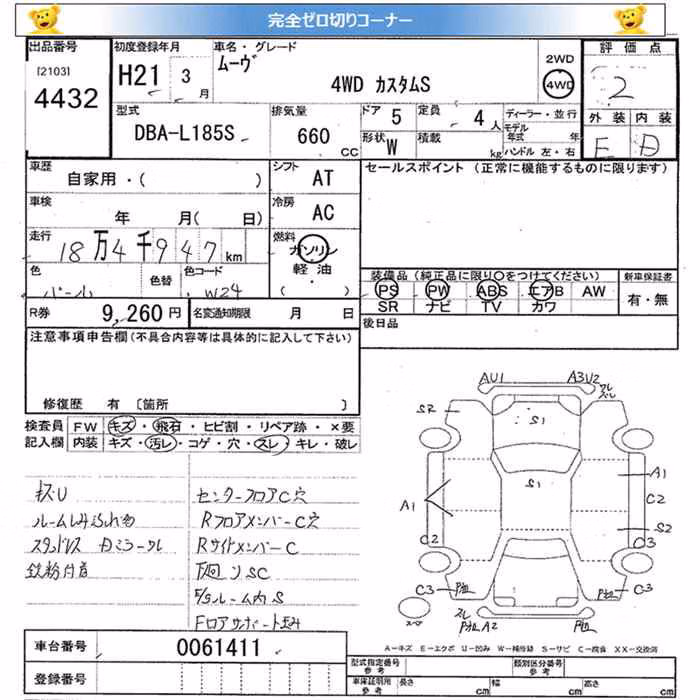 完全ゼロ切りコーナー
出品番号
[2103]
4432
初度登録年月
H21 3月
車名・グレード
ムーヴ
4WD カスタムS
2WD
4WD
評価点
2
外装 内装
E D
型式
DBA-L185S
排気量
660 CC
ドア 5
定員 4人
形状 W
積載 kg
ディーラー・並行
モデル年式 年
ハンドル 左・右
車歴
自家用・( )
シフト AT
セールスポイント (正常に機能するものに限ります)
車検
年 月( 日)
冷房 AC
走行
18万4千947km
燃料
ガソリン
軽油
( ・ )
色
パール
色替
色コード
W24
装備品 (純正品に限り○をつけてください)
PS PW ABS エアB AW
SR ナビ TV カワ
新車保証書
有・無
R券 9,260円
名変通知期限 月 日
後日品
注意事項申告欄(不具合内容等は具体的に記入して下さい)
修復歴 有 〔箇所 〕
検査員記入欄
FW キズ・飛石・ヒビ割・リペア跡・×要
内装 キズ・汚レ・コゲ・穴・スレ・キレ・破レ
キズU
センターフロアC穴
Rフロアメンバー C穴
RサイドメンバーC
鉄粉付着
下廻りSC
ルーム内S
Fロアサポート歪み
AU1 A3U2
SR S1
A1 S1 A1
C2 C2
S2
C3
C3 C3
A2
車台番号 0061411
登録番号
A－キズ E－エクボ U－凹み W－補修跡 S－サビ C－腐食 XX－交換済
型式指定番号
参考
類別区分番号
参考
車庫証明用
参考
長さ cm
幅 cm
高さ cm